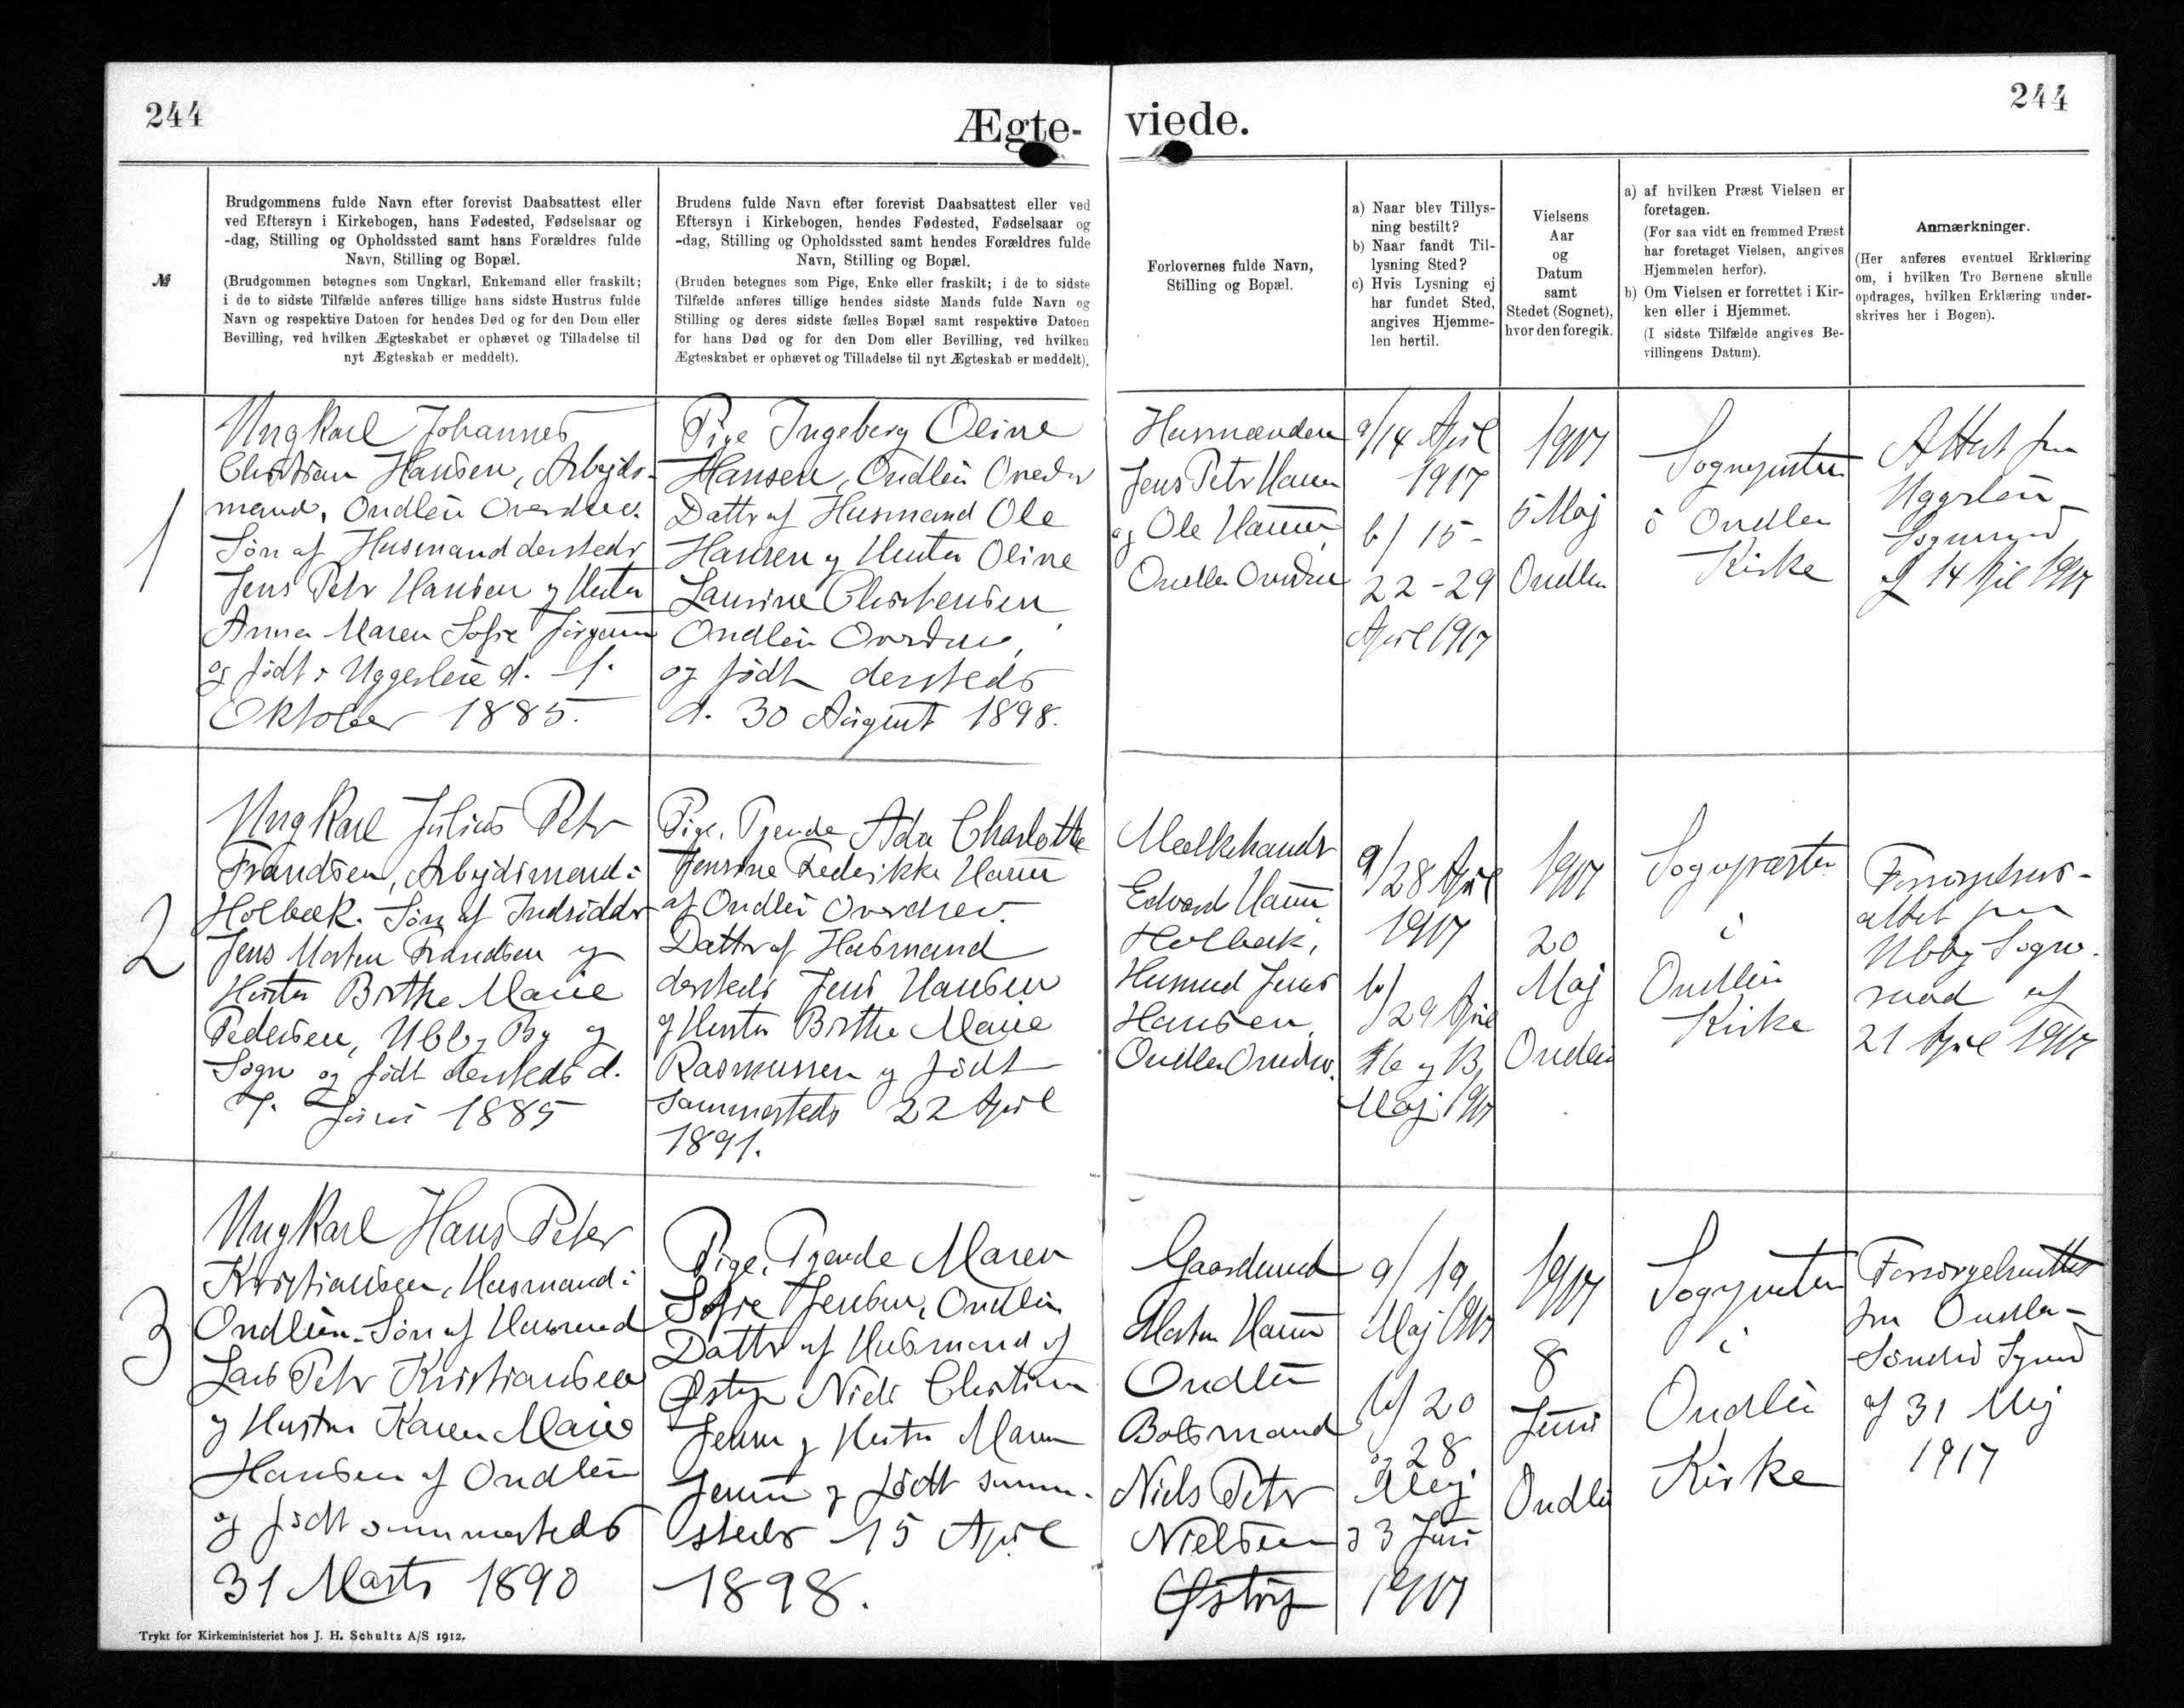 244
Ægte-
viede.
244
№
Brudgommens fulde Navn efter forevist Daabsattest eller
ved Eftersyn i Kirkebogen, hans Fødested, Fødselsaar og
-dag, Stilling og Opholdssted samt hans Forældres fulde
Navn, Stilling og Bopæl.
(Brudgommen betegnes som Ungkarl, Enkemand eller fraskilt;
i de to sidste Tilfælde anføres tillige hans sidste Hustrus fulde
Navn og respektive Datoen for hendes Død og for den Dom eller
Bevilling, ved hvilken Ægteskabet er ophævet og Tilladelse til
nyt Ægteskab er meddelt).
Brudens fulde Navn efter forevist Daabsattest eller ved
Eftersyn i Kirkebogen, hendes Fødested, Fødselsaar og
-dag, Stilling og Opholdssted samt hendes Forældres fulde
Navn, Stilling og Bopæl.
(Bruden betegnes som Pige, Enke eller fraskilt; i de to sidste
Tilfælde anføres tillige hendes sidste Mands fulde Navn og
Stilling og deres sidste fælles Bopæl samt respektive Datoen
for hans Død og for den Dom eller Bevilling, ved hvilken
Ægteskabet er ophævet og Tilladelse til nyt Ægteskab er meddelt).
Forlovernes fulde Navn,
Stilling og Bopæl.
a) Naar blev Tillys-
ning bestilt?
b) Naar fandt Til-
lysning Sted?
c) Hvis Lysning ej
har fundet Sted,
angives Hjemme-
len hertil.
Vielsens
Aar
og
Datum
samt
Stedet (Sognet),
hvor den foregik.
a) af hvilken Præst Vielsen er
foretagen.
(For saa vidt en fremmed Præst
har foretaget Vielsen, angives
Hjemmelen herfor).
b) Om Vielsen er forrettet i Kir-
ken eller i Hjemmet.
(I sidste Tilfælde angives Be-
villingens Datum).
Anmærkninger.
(Her anføres eventuel Erklæring
om, i hvilken Tro Børnene skulle
opdrages, hvilken Erklæring under-
skrives her i Bogen).
1
Ungkarl Johannes
Christian Hansen, Arbejds-
mand, Ondløse Overdrev.
Søn af Husmand dersteds
Jens Peter Hansen og Hustru
Anna Maren Sofie Jørgensen
og født i Uggerløse d. 1.
Oktober 1885.
Pige Ingeborg Oline
Hansen, Ondløse Overdrev
Datter af Husmand Ole
Hansen og Hustru Oline
Laurine Christensen,
Ondløse Overdrev,
og født dersteds
d. 30 August 1898.
Husmændene
Jens Peter Hansen
og Ole Hansen,
Ondløse Overdrev
a/14 April
1917
b/ 15-
22-29
April 1917
1917
5 Maj
Ondløse
Sognepræsten
i Ondløse
Kirke
Attest fra
Uggerløse
Sogneraad
af 14 April 1917
2
Ungkarl Julius Peter
Frandsen, Arbejdsmand i
Holbæk. Søn af Indsidder
Jens Morten Frandsen og
Hustru Birthe Marie
Pedersen, Ubby By og
Sogn og født dersteds d.
7. Juni 1885
Pige, Tjende Ada Charlotte
Jensine Frederikke Hansen
af Ondløse Overdrev.
Datter af Husmand
dersteds Jens Hansen
og Hustru Birthe Marie
Rasmussen og født
sammesteds 22 April
1891.
Mælkehandler
Edvard Hansen,
Holbæk,
Husmand Jens
Hansen,
Ondløse Overdrev.
a/28 April
1917
b/
29 April
6 og 13
Maj 1917
1917
20
Maj
Ondløse
Sognepræsten
i
Ondløse
Kirke
Forsørgelses-
attest fra
Ubby Sogne-
raad af
21 April 1917
3
Ungkarl Hans Peter
Kristiansen, Husmand i
Ondløse. Søn af Husmand
Lars Peter Kristiansen
og Hustru Karen Marie
Hansen af Ondløse
og født sammesteds
31 Marts 1890
Pige, Tjende Maren
Sofie Jensen, Ondløse
Datter af Husmand af
Østrup Niels Christian
Jensen og Hustru Maren
Jensen og født samme-
steds 15 April
1898.
Gaardmand
Morten Hansen
Ondløse
Bolsmand
Niels Peter
Nielsen
Østrup
a/ 19
Maj 1917
b/ 20
og 28
Maj
og 3 Juni
1917
1917
8
Juni
Ondløse
Sognepræsten
i
Ondløse
Kirke
Forsørgelsesattest
fra Ondløse-
Søndersted Sogneraad
af 31 Maj
1917
Trykt for Kirkeministeriet hos J. H. Schultz A/S 1912.